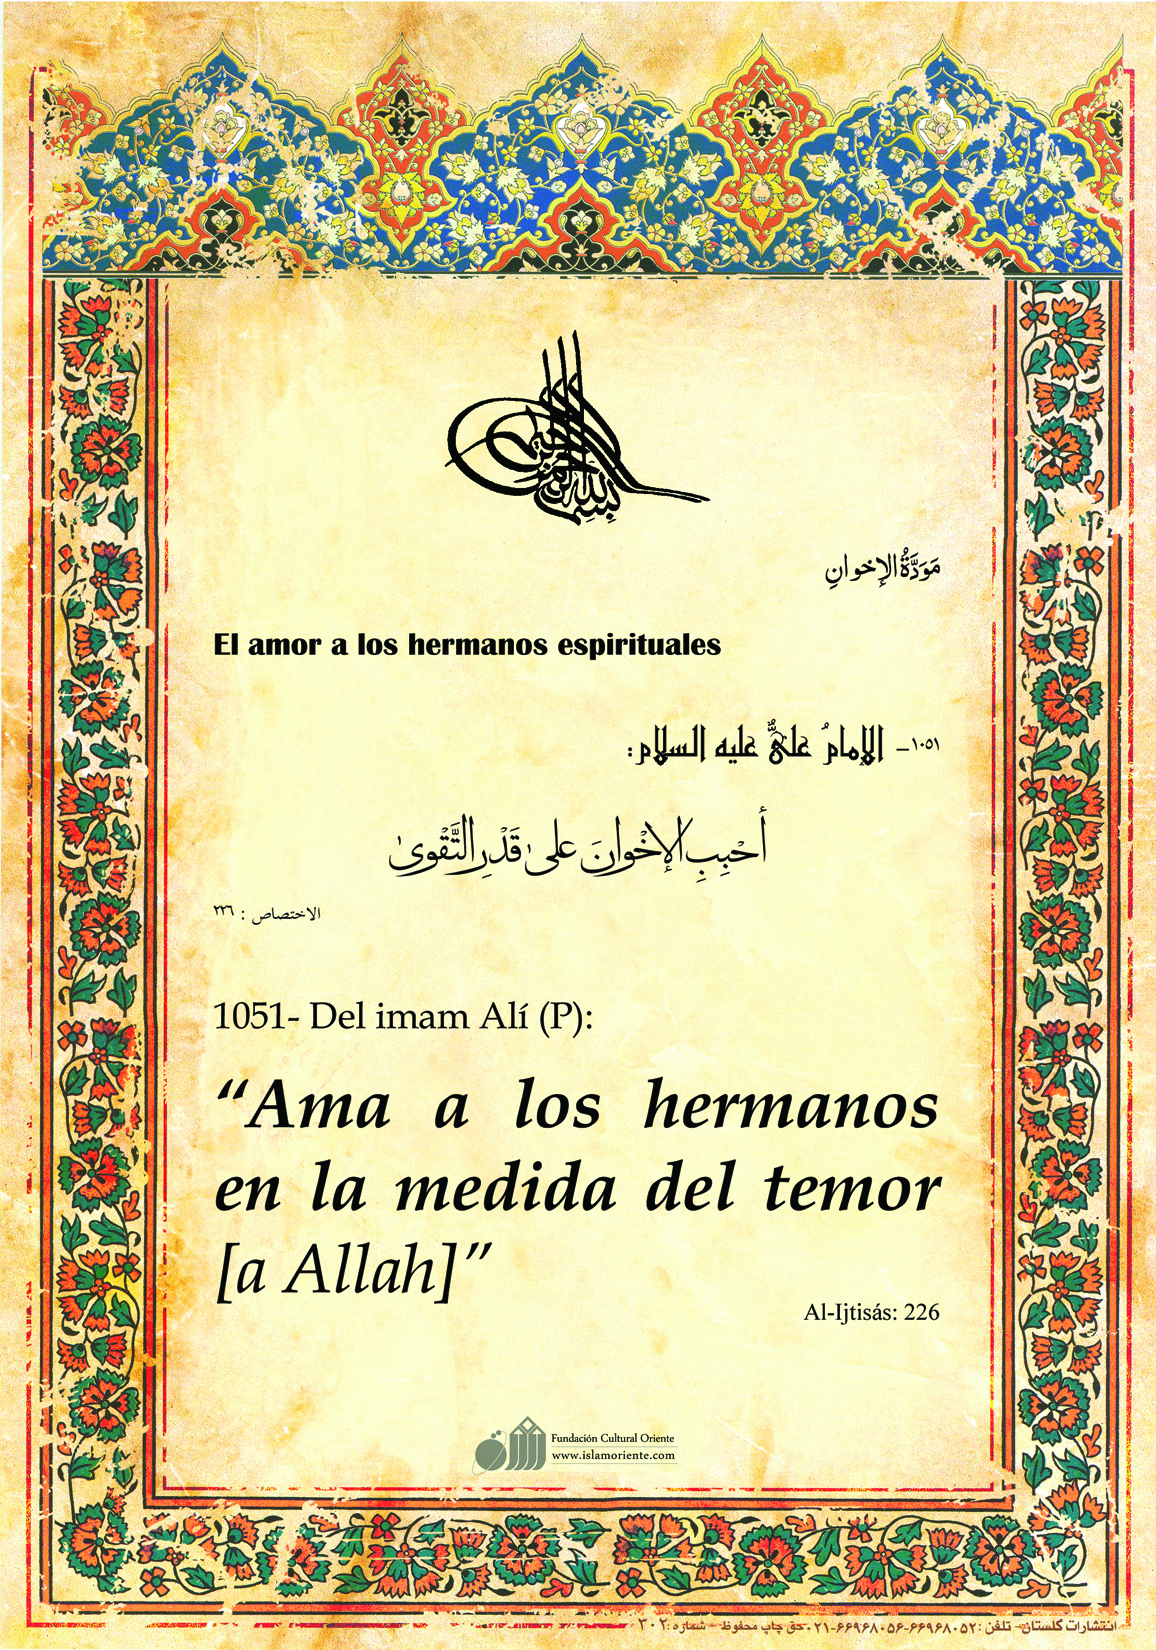 بسم الله الرحمن الرحيم
مَوَدَّةُ الإخوانِ
El amor a los hermanos espirituales
١٠٥١- الإمامُ عليٌّ عليه السلام:
أحْبِبِ الإخْوانَ على قَدْرِ التَّقْوىٰ
الاختصاص : ٢٢٦
1051- Del imam Alí (P):
“Ama a los hermanos
en la medida del temor
[a Allah]”
Al-Ijtisás: 226
Fundación Cultural Oriente
www.islamoriente.com
انتشارات گلستان - تلفن: ۶۶۹۶۸۰۵۲-۶۶۹۶۸۰۵۶-۰۲۱ حق چاپ محفوظ - شماره: ۳۰۲